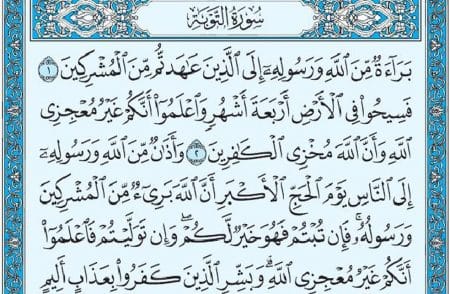 سُورَةُ التَّوْبَةِ
بَرَآءَةٌ مِّنَ ٱللَّهِ وَرَسُولِهِۦٓ إِلَى ٱلَّذِينَ عَٰهَدتُّم مِّنَ ٱلْمُشْرِكِينَ ١
فَسِيحُوا۟ فِى ٱلْأَرْضِ أَرْبَعَةَ أَشْهُرٍ وَٱعْلَمُوٓا۟ أَنَّكُمْ غَيْرُ مُعْجِزِى
ٱللَّهِ وَأَنَّ ٱللَّهَ مُخْزِى ٱلْكَٰفِرِينَ ٢ وَأَذَٰنٌ مِّنَ ٱللَّهِ وَرَسُولِهِۦٓ
إِلَى ٱلنَّاسِ يَوْمَ ٱلْحَجِّ ٱلْأَكْبَرِ أَنَّ ٱللَّهَ بَرِىٓءٌ مِّنَ ٱلْمُشْرِكِينَ
وَرَسُولُهُۥ ۚ فَإِن تُبْتُمْ فَهُوَ خَيْرٌ لَّكُمْ ۖ وَإِن تَوَلَّيْتُمْ فَٱعْلَمُوٓا۟
أَنَّكُمْ غَيْرُ مُعْجِزِى ٱللَّهِ ۗ وَبَشِّرِ ٱلَّذِينَ كَفَرُوا۟ بِعَذَابٍ أَلِيمٍ